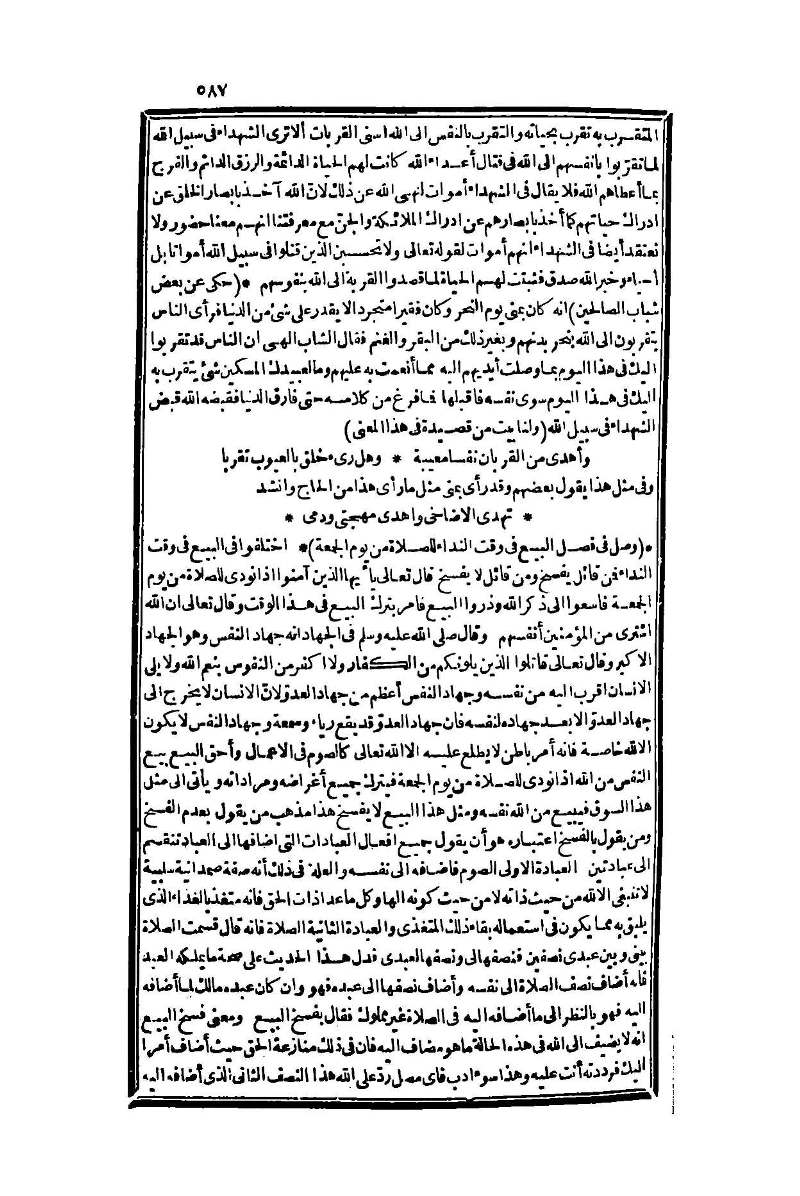 ٥٨٧
المتقرب به تقرب بحياته والتقرب بالنفس الى الله اسنى القربات ألا ترى الشهداء فى سبيل الله
لما تقربوا بانفسهم الى الله فى قتال أعداء الله كانت لهم الحياة الدائمة والرزق الدائم والفرح
بما أعطاهم الله فلا يقال فى الشهداء أموات لنهى الله عن ذلك لان الله آخذ بابصار الخلق عن
ادراك حياتهم كما أخذ بابصارهم عن ادراك الملائكة والجن مع معرفتنا انهم معنا حضور ولا
نعتقد أيضا فى الشهداء انهم أموات لقوله تعالى ولا تحسبن الذين قتلوا فى سبيل الله أمواتا بل
أحياء وخبر الله صدق فثبتت لهم الحياة لما قصدوا القربة الى الله بنفوسهم * (حكى عن بعض
شباب الصالحين) انه كان بمنى يوم النحر وكان فقيرا متجردا لا يقدر على شئ من الدنيا فرأى الناس
يتقربون الى الله بنحر بدنهم وبغير ذلك من البقر والغنم فقال الشاب الهى ان الناس قد تقربوا
اليك فى هذا اليوم بما وصلت أيديهم اليه مما أنعمت به عليهم وما لعبيدك المسكين شئ يتقرب به
اليك فى هذا اليوم سوى نفسه فاقبلها فما فرغ من كلامه حتى فارق الدنيا فقبضه الله قبض
الشهداء فى سبيل الله (ولنا بيت من قصيدة فى هذا المعنى)
وأهدى من القربان نفسا معيبة * وهل رىء خلق بالعيوب تقربا
وفى مثل هذا يقول بعضهم وقد رأى بمنى مثل ما رأى هذا من الحاج وانشد
* تهدى الاضاحى واهدى مهجتى ودمى *
* (وصل فى فصل البيع فى وقت النداء للصلاة من يوم الجمعة) * اختلفوا فى البيع فى وقت
النداء فمن قائل يفسخ ومن قائل لا يفسخ قال تعالى يأيها الذين آمنوا اذا نودى للصلاة من يوم
الجمعة فاسعوا الى ذكر الله وذروا البيع فامر بترك البيع فى هذا الوقت وقال تعالى ان الله
اشترى من المؤمنين أنفسهم وقال صلى الله عليه وسلم فى الجهاد انه جهاد النفس وهو الجهاد
الاكبر وقال تعالى قاتلوا الذين يلونكم من الكفار ولا اكفر من النفوس بنعم الله ولا يلى
الانسان اقرب اليه من نفسه وجهاد النفس أعظم من جهاد العدو لان الانسان لا يخرج الى
جهاد العدو الا بعد جهاده لنفسه فان جهاد العدو قد يقع رياء وسمعة وجهاد النفس لا يكون
الا لله خاصة فانه أمر باطن لا يطلع عليه الا الله تعالى كالصوم فى الاعمال وأحق البيع بيع
النفس من الله اذا نودى للصلاة من يوم الجمعة فيترك جميع أغراضه ومراداته ويأتى الى مثل
هذا السوق فيبيع من الله نفسه ومثل هذا البيع لا يفسخ هذا مذهب من يقول بعدم الفسخ
ومن يقول بالفسخ اعتباره هو أن يقول جميع افعال العبادات التى اضافها الى العباد تنقسم
الى عبادتين العبادة الاولى الصوم فاضافه الى نفسه والعلة فى ذلك أنه صفة صمدانية سلبية
لا تنبغى الا لله من حيث ذاته لا من حيث كونه الها وكل ما عدا ذات الحق فانه متغذ بالغذاء الذى
يليق به مما يكون فى استعماله بقاء ذلك المتغذى والعبادة الثانية الصلاة فانه قال قسمت الصلاة
بينى وبين عبدى نصفين فنصفها لى ونصفها لعبدى فدل هذا الحديث على صحة ما يملكه العبد
فانه أضاف نصف الصلاة الى نفسه وأضاف نصفها الى عبده فهو وان كان عبده مالك لما أضافه
اليه فهو بالنظر الى ما أضافه اليه فى الصلاة غير مملوك فقال بفسخ البيع ومعنى فسخ البيع
انه لا يضيف الى الله فى هذه الحالة ما هو مضاف اليه فان فى ذلك منازعة الحق حيث أضاف أمرا
اليك فرددته أنت عليه وهذا سوء ادب فاى مصل رد على الله هذا النصف الثانى الذى أضافه اليه